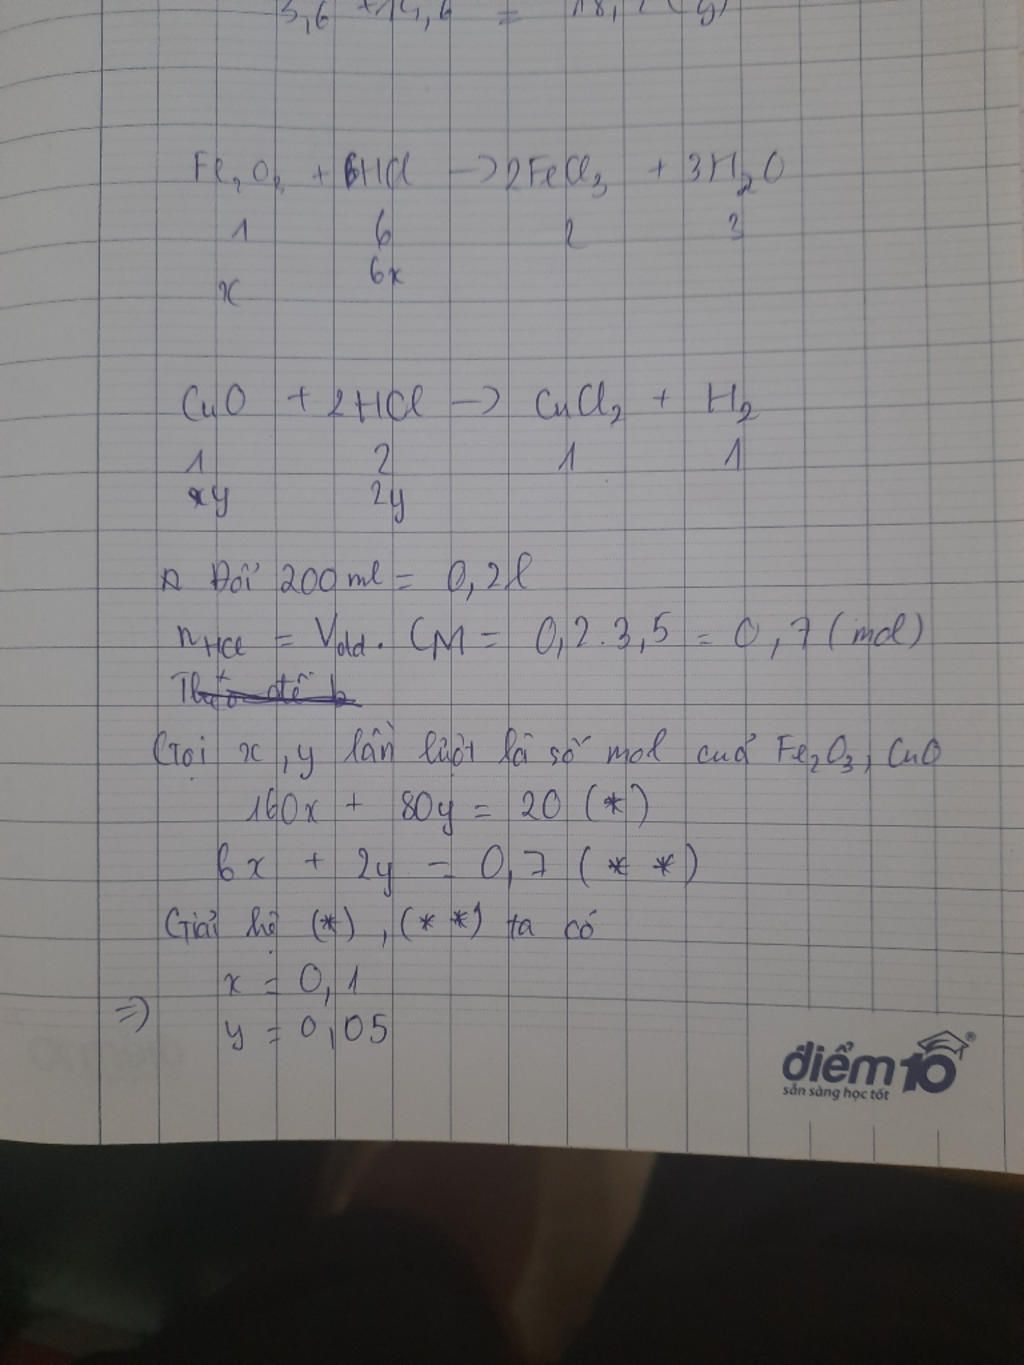 3,6 + 14,6 =
Fe2O3 + 6HCl -> 2FeCl3 + 3H2O
1 6 2 3
6x
x
CuO + 2HCl -> CuCl2 + H2
1 2 1 1
xy 2y
Đổi 200 ml = 0,2l
nHCl = Vdd. CM = 0,2.3,5 = 0,7 (mol)
Gọi x, y lần lượt là số mol của Fe2O3, CuO
160x + 80y = 20 (*)
6x + 2y = 0,7 (* *)
Giải hệ (*), (* *) ta có
x = 0,1
=>
y = 0,05
điểm10®
sẵn sàng học tốt